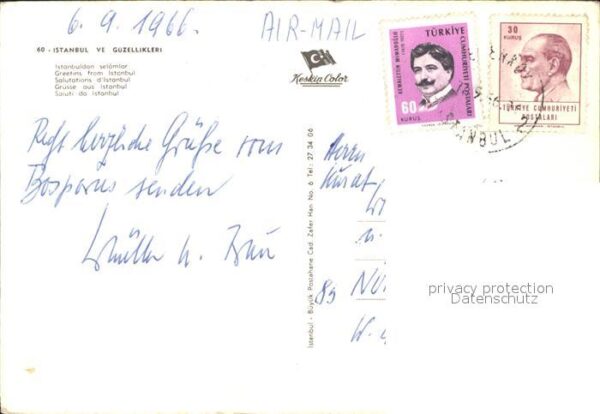 6.9.1966.
AIR-MAIL
60 - ISTANBUL VE GÜZELLIKLERI
Istanbuldan selâmlar
Greetins from Istanbul
Salutations d'Istanbul
Grüsse aus Istanbul
Saluti da Istanbul
Keskin Color
KEMALETTIN MIMAROĞLU
TÜRKİYE CUMHURİYETİ POSTALARI
60
KURUS
30
KURUS
TÜRKİYE CUMHURİYETİ
POSTALARI
ISTANBUL
Recht herzliche Grüße vom
Bosporus senden
Müller u. Frau
Istanbul - Büyük Postahane Cad. Zafer Han No. 6 Tel.: 27 34 06
Herrn
Kurat
85 NÜ
privacy protection
Datenschutz